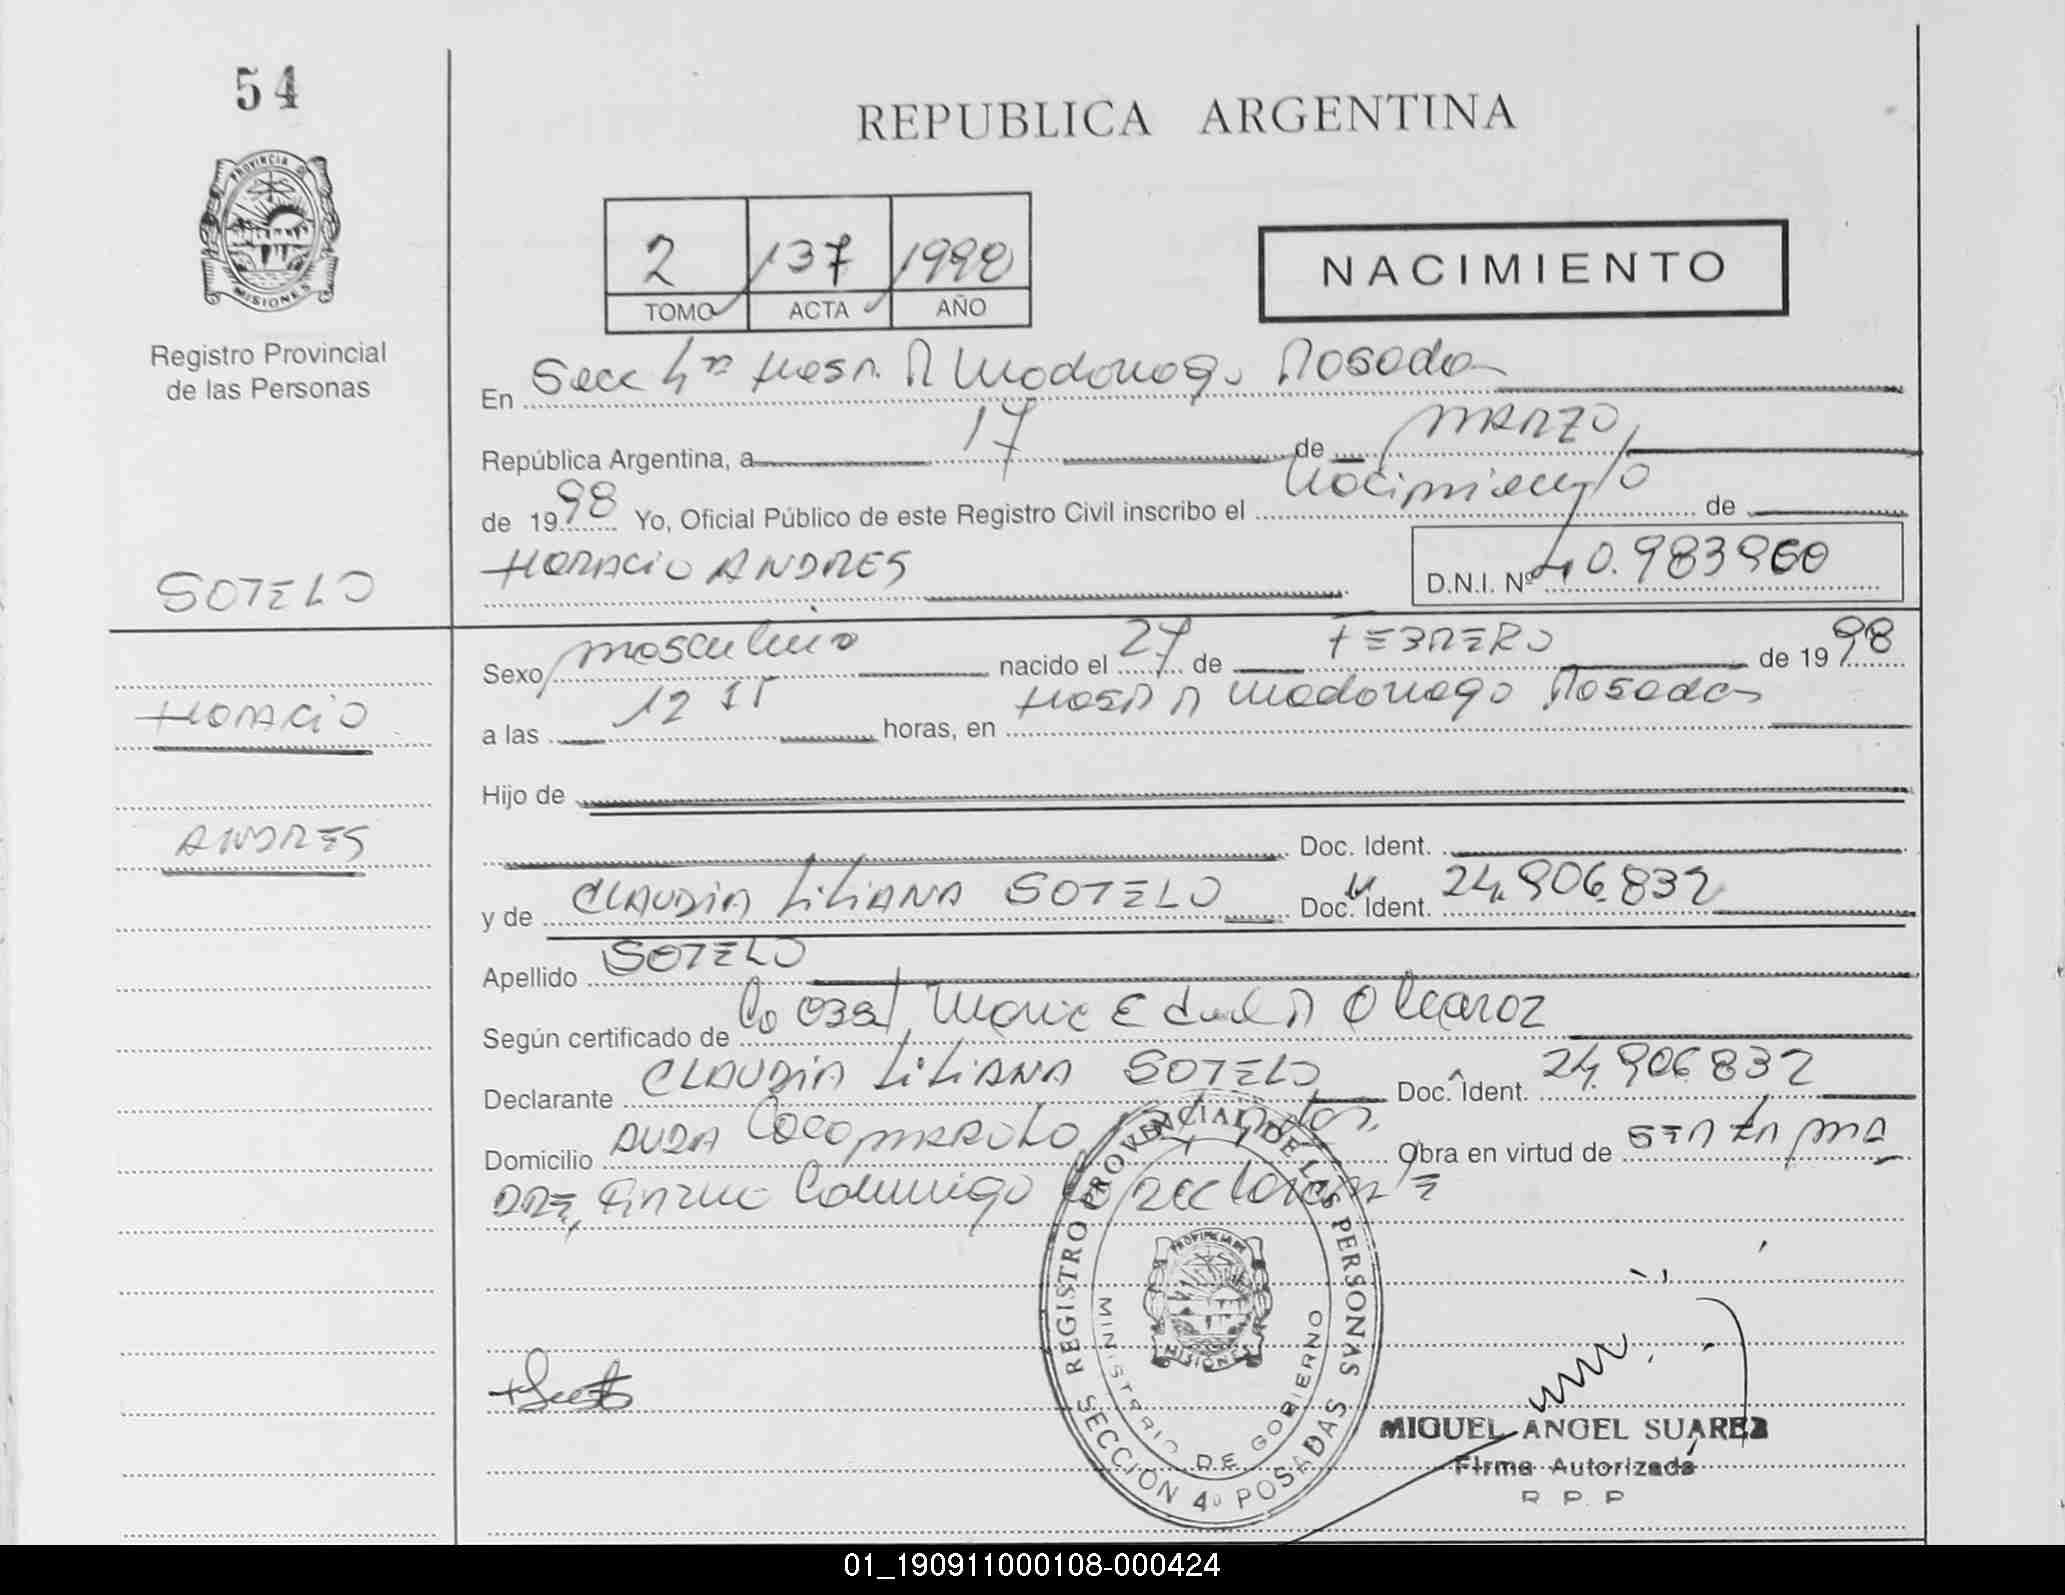 54
REPUBLICA ARGENTINA
PROVINCIA DE
MISIONES
2 137 1998
TOMO ACTA AÑO
NACIMIENTO
Registro Provincial
de las Personas
En Secc 4ta Hosp. R Madariaga Posadas
República Argentina, a 17 de MARZO
de 1998 Yo, Oficial Público de este Registro Civil inscribo el Nacimiento de
HORACIO ANDRES
D.N.I. Nº 40.983960
SOTELO
Sexo masculino nacido el 27 de FEBRERO de 1998
HORACIO
a las 12 horas, en Hosp R Madariaga Posadas
Hijo de
ANDRES
Doc. Ident.
y de CLAUDIA LILIANA SOTELO Doc. Ident. 24.906.832
Apellido SOTELO
Según certificado de
Declarante CLAUDIA LILIANA SOTELO Doc. Ident. 24.906832
Domicilio Obra en virtud de SER LA MA
DRE, Firma Conmigo la declarante
REGISTRO PROVINCIAL DE LAS PERSONAS
MINISTERIO DE GOBIERNO
PROVINCIA DE
MISIONES
SECCIÓN 4º POSADAS
MIGUEL ANGEL SUAREZ
Firma Autorizada
R P P
01_190911000108-000424